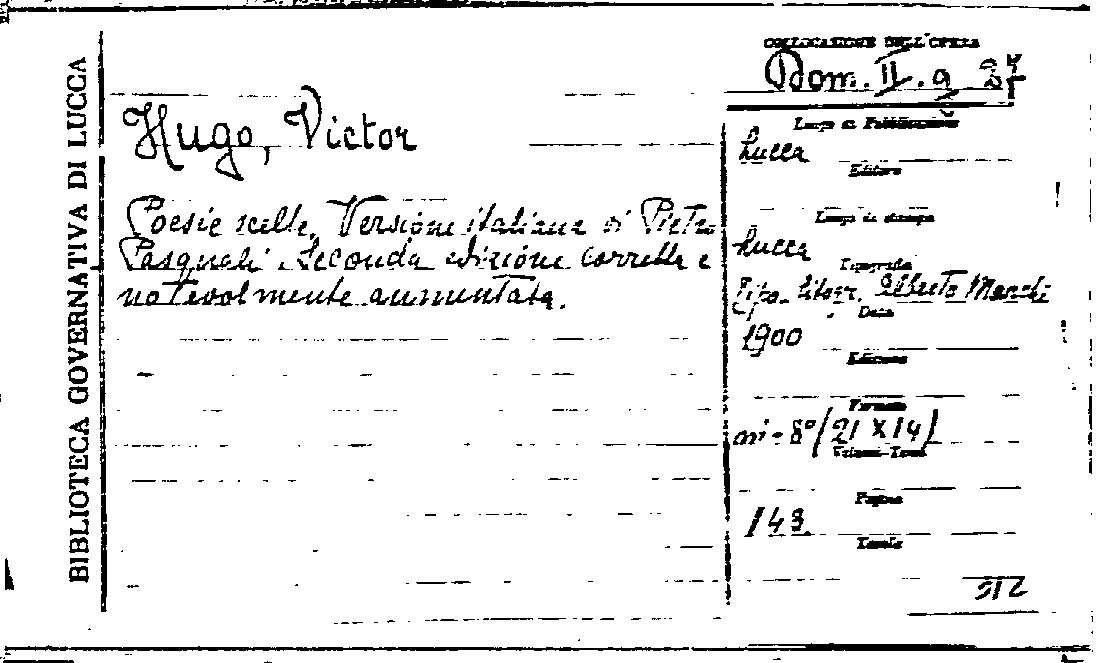 BIBLIOTECA GOVERNATIVA DI LUCCA
COLLOCAZIONE DELL'OPERA
Dom. II. 9
Hugo, Victor
Poesie scelte. Versione italiana di Pietro
Pasquali. Seconda edizione corretta e
notevolmente aumentata.
Luogo di Pubblicazione
Lucca
Editore
Luogo di stampa
Lucca
Tipografia
Tipo-litogr. Alberto Marchi
Data
1900
Edizione
Formato
in-8° (21 X 14)
Volumi-Tomi
Pagine
148.
Tavole
512